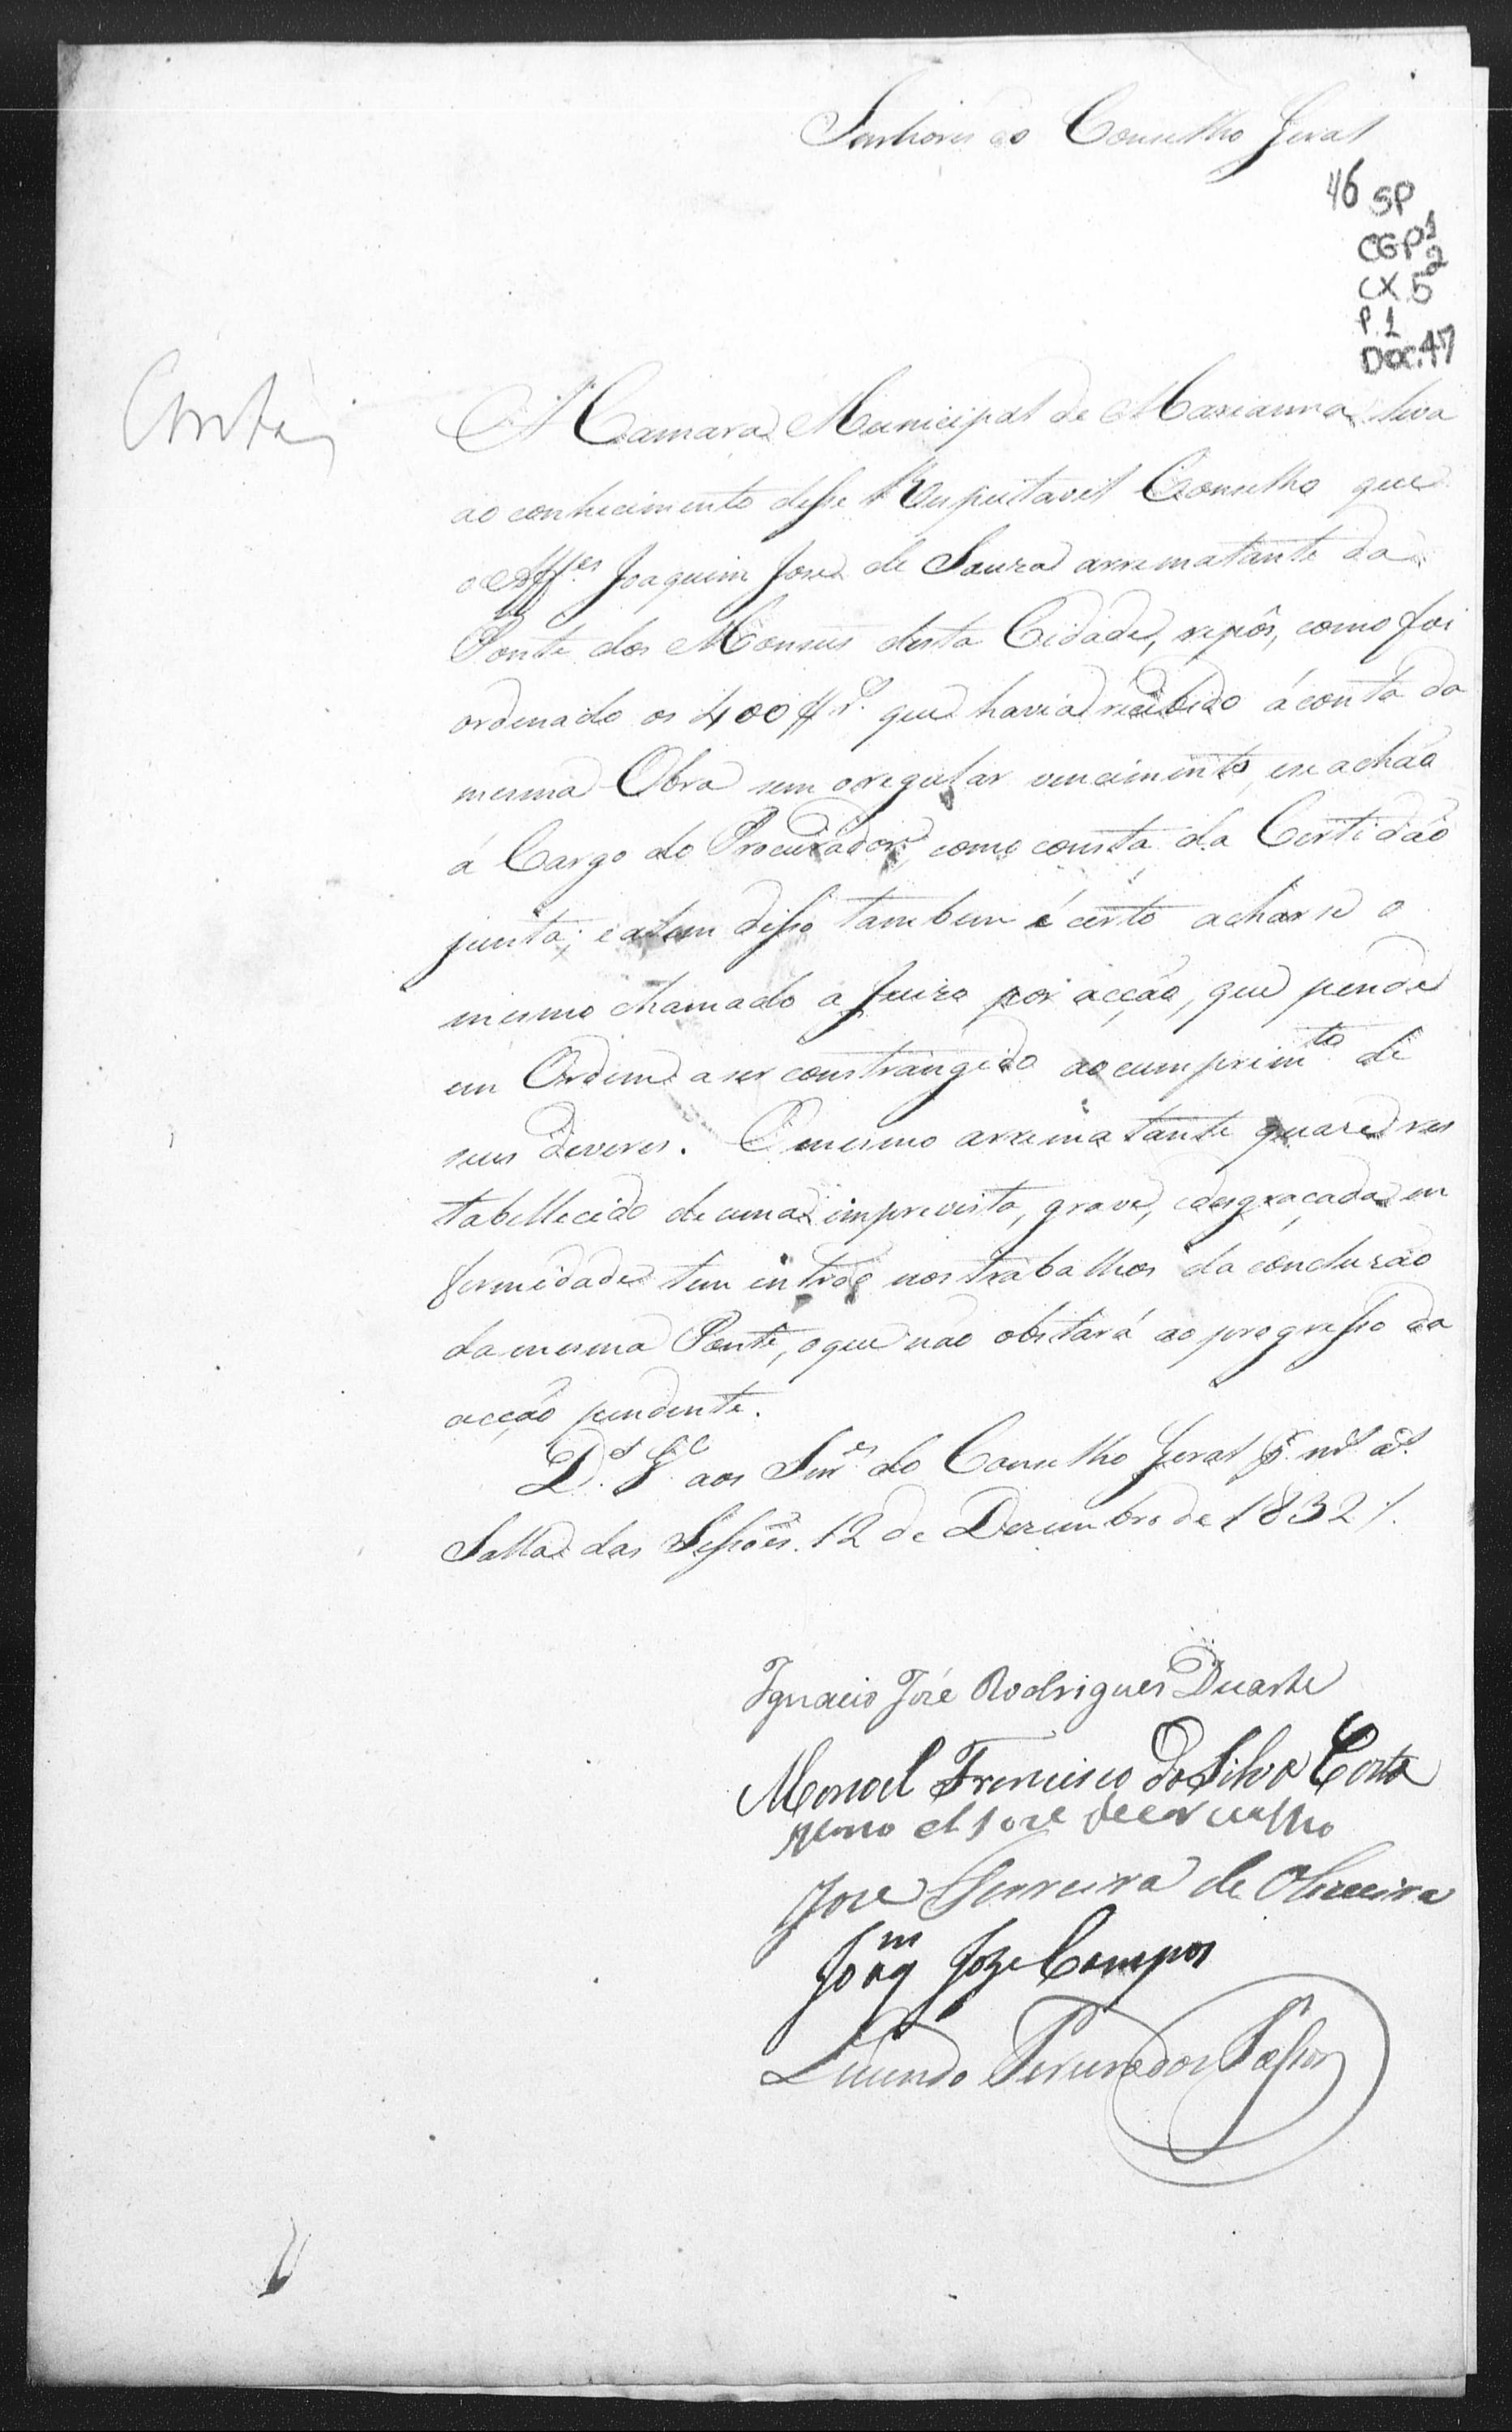 Senhores do Conselho Geral
46 SP
CGP1
2
CX 5
P. 1
DOC. 47
Contas
A Camara Municipal de Marianna leva
ao conhecimento desse Respeitavel Conselho que
o Alfes Joaquim Jose de Souza arrematante da
Ponte dos Monsus desta Cidade, repôs, como foi
ordenado os 400$rs. que havia recebido á conta da
mesma Obra sem o regular vencimento, e se achão
á Cargo do Procurador, como consta da Certidão
junta; e alem disso tambem é certo achar se o
mesmo chamado a Juizo por acção, que pende
em Ordem a ser constrangido ao cumprimto de
seus deveres. O mesmo arrematante quaze res
tabellecido de uma imprevista, grave, e desgraçada en
fermidade tem entrado nos trabalhos da concluzão
da mesma Ponte, o que não obstará ao progresso da
acção pendente.
Ds. Ge. aos Snres do Conselho Geral
Salla das Sessões 12 de Dezembro de 1832/.
Ignacio José Rodrigues Duarte
Manoel Francisco da Silva Costa
Manoel Jose de Carvalho
Jose Ferreira de Oliveira
Joaqm Joze Campos
Lucindo Pereira dos Passos